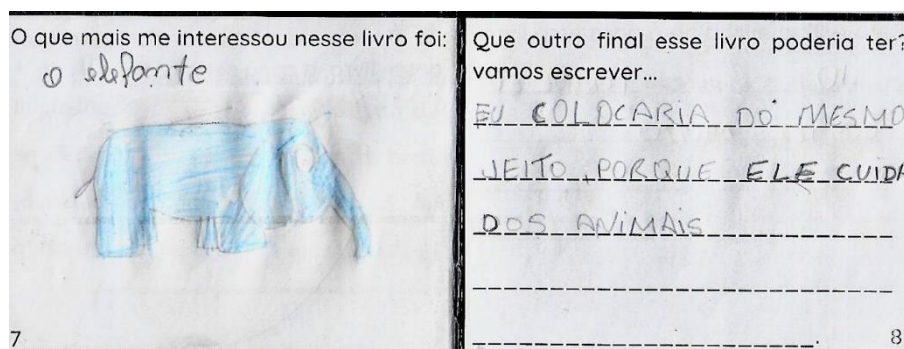 O que mais me interessou nesse livro foi:
o elefante
7
Que outro final esse livro poderia ter?
vamos escrever...
EU COLOCARIA DO MESMO
JEITO PORQUE ELE CUIDA
DOS ANIMAIS
8